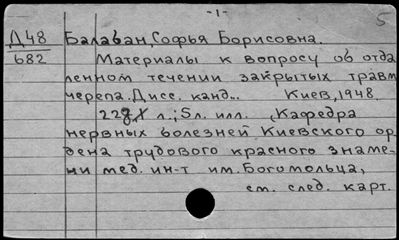 -1-
5
Д48
682
Балабан, Софья Борисовна.
Материалы к вопросу об отда
ленном течении закрытых травм
черепа. Дисс. канд... Киев, 1948.
л.; 5л. илл. (Кафедра
нервных болезней Киевского ор
дена трудового красного знаме-
ни мед. ин-т им. Богомольца,
см. след. карт.